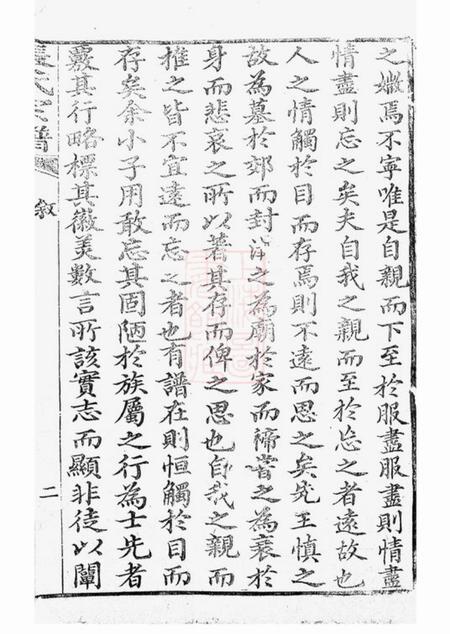 之嬓焉不寧唯是自親而下至於服盡服盡則情盡
情盡則忘之矣夫自我之親而至於忘之者遠故也
人之情觸於目而存焉則不遠而思之矣先王慎之
故為墓於郊而封溝之為廟於家而禘嘗之為衰於
身而悲哀之所以著其存而俾之思也自我之親而
推之皆不宜遠而忘之者也有譜在則恒觸於目而
存矣余小子用敢忘其固陋於族屬之行為士先者
覈其行略標其徽美數言所該實志而顯非徒以闡
氏宗譜
敘
二